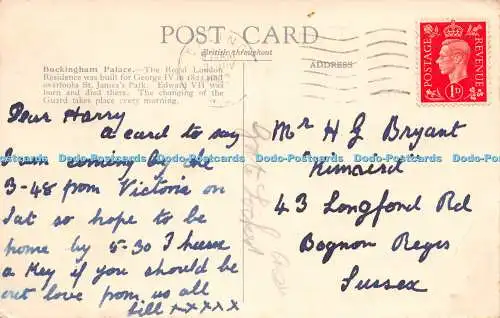 POST CARD
British throughout
Buckingham Palace.—The Royal London
Residence was built for George IV in 1825 and
overlooks St. James's Park. Edward VII was
born and died there. The changing of the
Guard takes place every morning.
ADDRESS
POSTAGE
REVENUE
1D
Dear Harry
a card to say
I am coming by the
3-48 from Victoria on
Sat so hope to be
home by 5-30 I have
a Key if you should be
out love from us all
Lill xxxxx
Mr H G Bryant
43 Longford Rd
Bognor Regis
Sussex
Dodo-Postcards Dodo-Postcards Dodo-Postcards Dodo-Postcards Dodo-Postcards